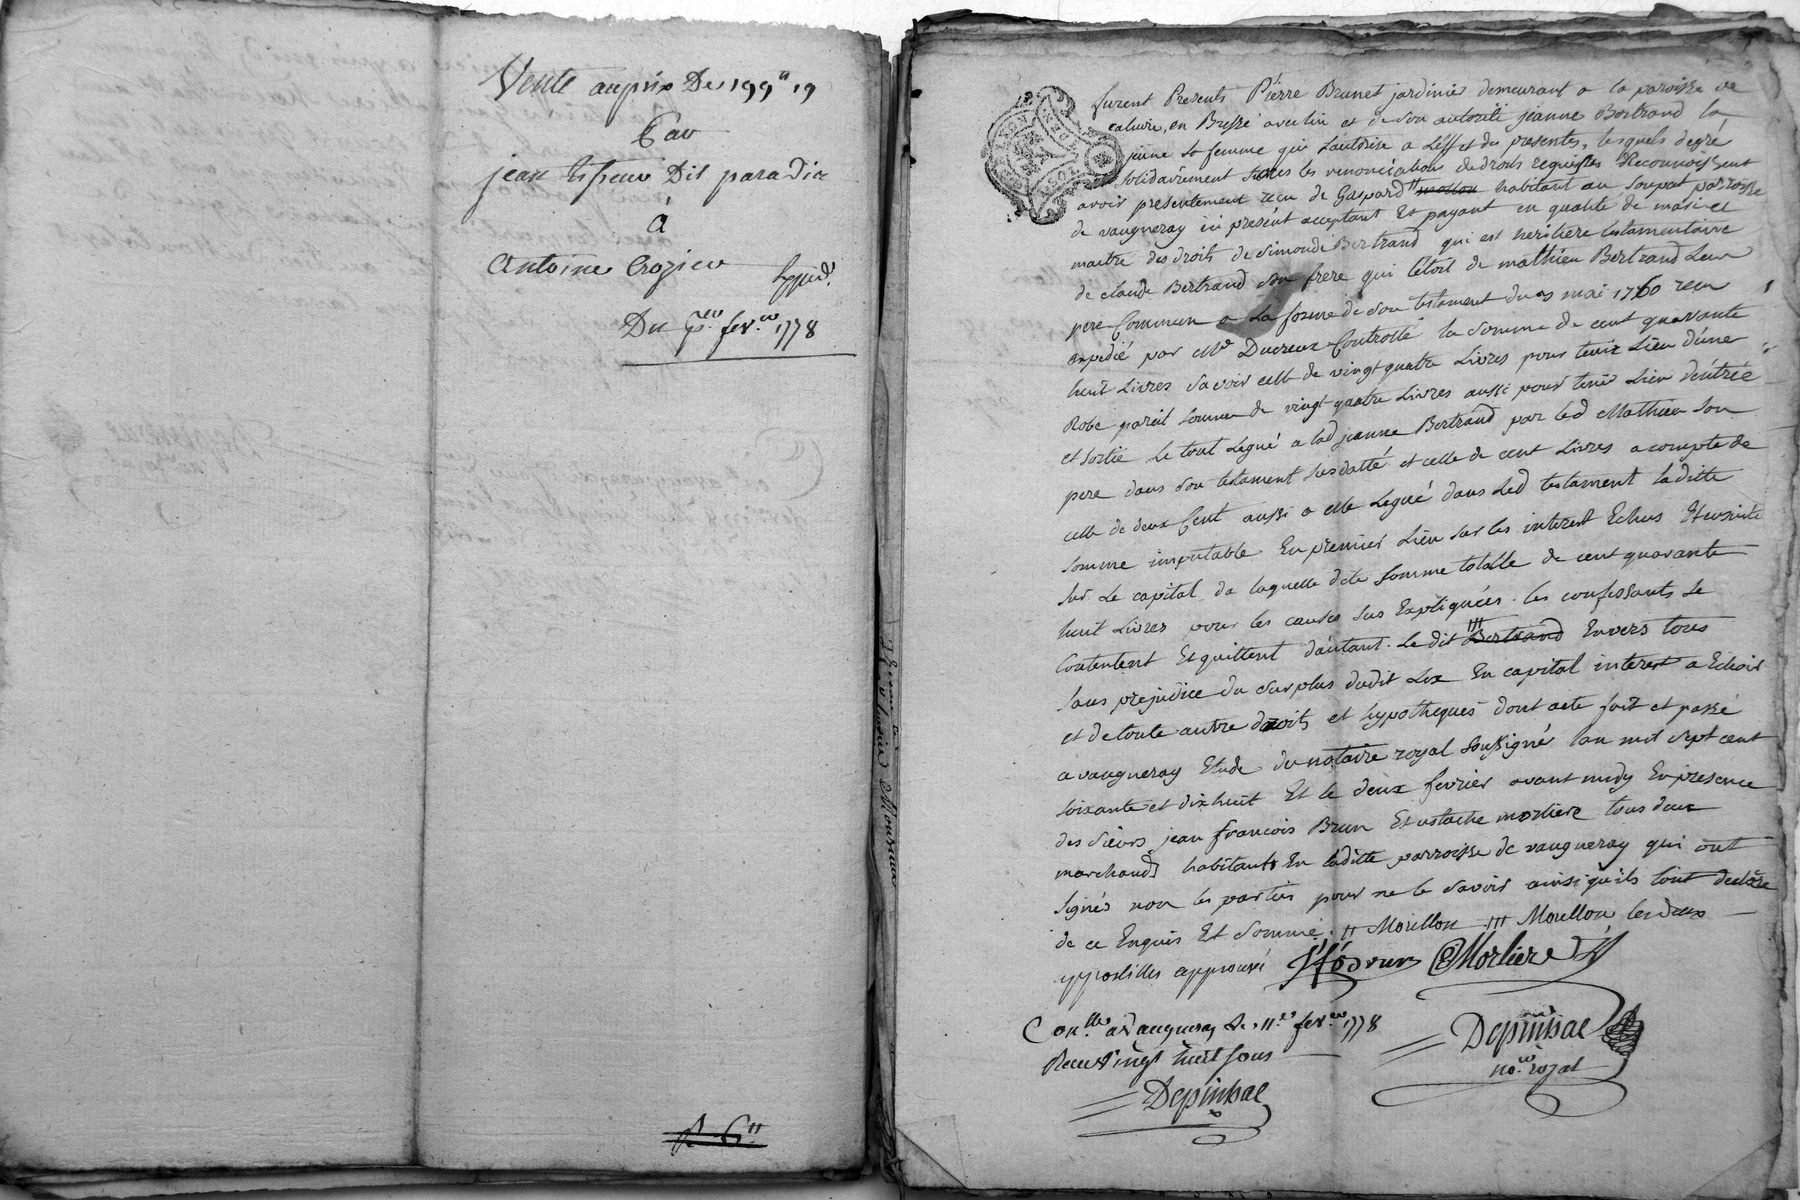 Vente au prix De 199ᵗᵗ 19
Par
jean tisseur Dit paradis
à
Antoine Crozier
Exped.
Du pᵉʳ fevᵉʳ 1778
furent Presents Pierre Brunet jardinier demeurant a la paroisse de
caluire, en Bresse avec lui et de son autorité jeanne Bertrand la
jeune sa femme qui l'autorise a l'effet des presentes, lesquels de gré
solidairement sous les renonciations de droits requises Reconnoissent
avoir presentement reçu de Gaspard " mollon habitant au Soupat parroisse
de vaugneray ici present acceptant Et payant en qualité de mari et
maitre des droits de Simonde Bertrand qui est heritiere testamentaire
de claude Bertrand son frere qui l'étoit de mathieu Bertrand Leur
pere Commun a La forme de son testament du 3 mai 1760 recu
expedié par Mᵉ Ducreux Controllé la somme de cent quarante
huit Livres savoir celle de vingt quatre Livres pour tenir Lieu d'une
Robe pareil somme de vingt quatre Livres aussi pour tenir Lieu d'entrée
et sortie Le tout Legué a lad jeanne Bertrand par led Mathieu son
pere dans son testament susdatté et celle de cent Livres a compte de
celle de deux Cent aussi a elle Legué dans Led testament laditte
somme imputable En premier Lieu sur les interest Echus Et ensuite
sur Le capital de laquelle dite somme totalle de cent quarante
huit Livres pour les causes sus Expliquées les confessants se
Contentent Et quittent d'autant Le dit ''' Bertrand Envers tous
sans prejudice du surplus dudit Lex En capital interest a Echoir
et de toute autre droits et hypotheques dont acte fait et passé
a vaugneray Etude du notaire royal soussigné l'an mil sept cent
soixante et dix huit Et le deux fevrier avant midy En presence
des sieurs jean françois Brun Et ustache mortiere tous deux
marchands habitants En laditte parroisse de vaugneray qui ont
signés non les parties pour ne le savoir ainsi qu'ils l'ont declare
de ce Enquis Et Sommé. '' Morellon ''' Morellon les deux
appostilles approuvé Jfcs Brun E Morliere
Conᵗˡˡᵉ a Vaugneray Le 11ᵉ fevᵉʳ 1778
Recu Vingt huit sous
Depinhac
Depinhac
noʳᵉ royal